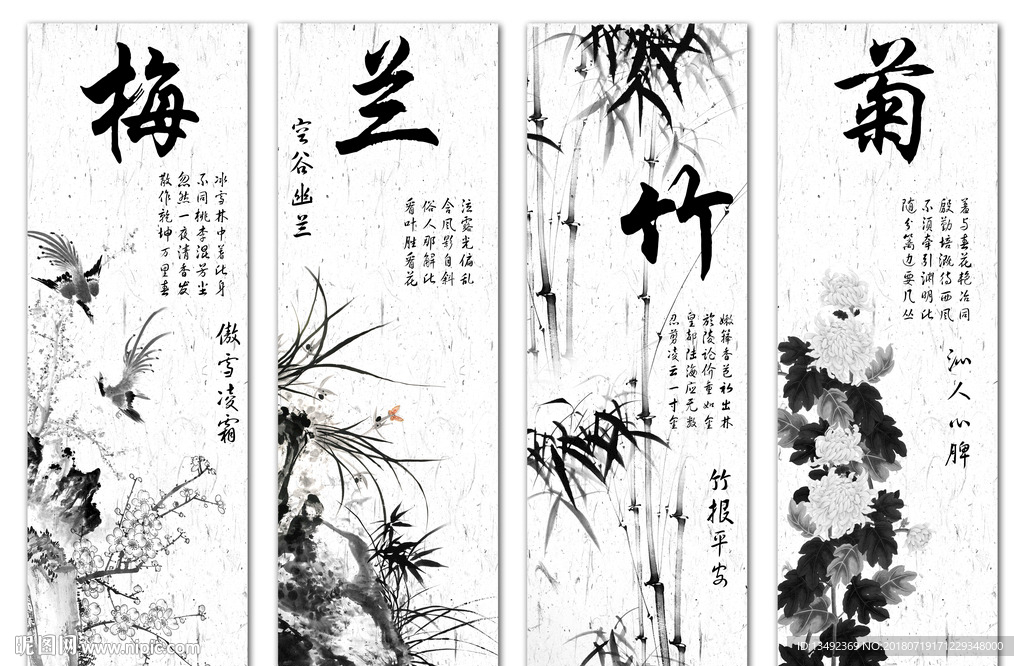 梅
冰雪林中著此身
不同桃李混芳尘
忽然一夜清香发
散作乾坤万里春
傲雪凌霜
兰
空谷幽兰
泣露光偏乱
含风影自斜
俗人那解此
看叶胜看花
竹
嫩箨香苞初出林
於陵论价重如金
皇都陆海应无数
忍剪凌云一寸金
竹报平安
菊
羞与春花艳冶同
殷勤培溉待西风
不须牵引渊明比
随分篱边要几丛
沁人心脾
昵图网 www.nipic.com
ID:13492369 NO:20180719171229348000